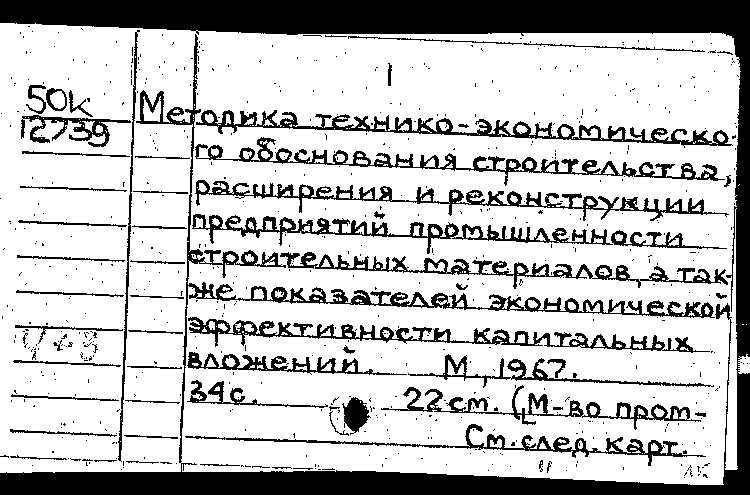 1
50к
12739
Методика технико-экономическо-
го обоснования строительства,
расширения и реконструкции
предприятий промышленности
строительных материалов, а так-
же показателей экономической
эффективности капитальных
вложений. М., 1967.
34с. 22см. (М-во пром-
См. след. карт.